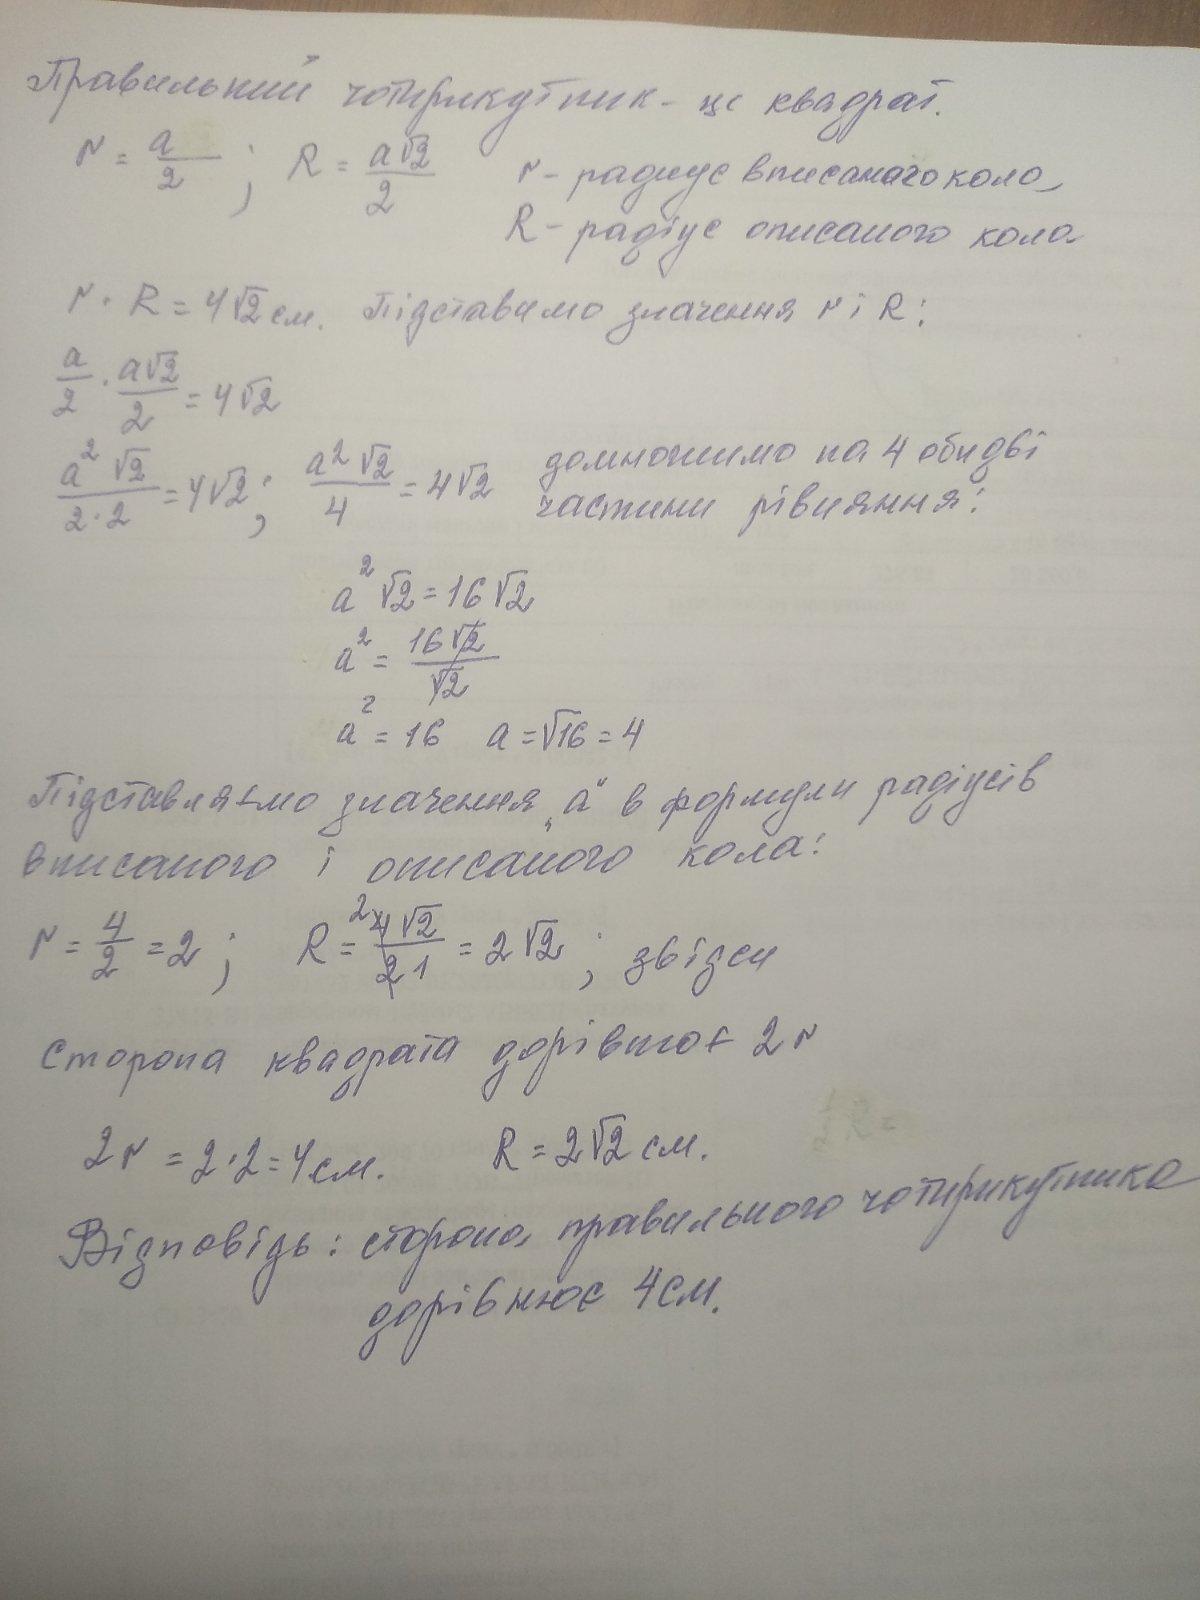 Правильний чотирикутник - це квадрат.
r = a/2 ; R = a√2/2 r - радиус вписаного кола,
R - радіус описаного кола
r · R = 4√2 см. Підставимо значення r і R:
a/2 · a√2/2 = 4√2
a²√2/2·2 = 4√2 ; a²√2/4 = 4√2 домножимо на 4 обидві
частини рівняння:
a²√2 = 16√2
a² = 16√2/√2
a² = 16 a = √16 = 4
Підставляємо значення „a" в формули радіусів
вписаного і описаного кола:
r = 4/2 = 2 ; R = 2 4√2/2 1 = 2√2 ; звідси
Сторона квадрата дорівнює 2r
2r = 2·2 = 4 см. R = 2√2 см.
Відповідь: сторона правильного чотирикутника
дорівнює 4 см.